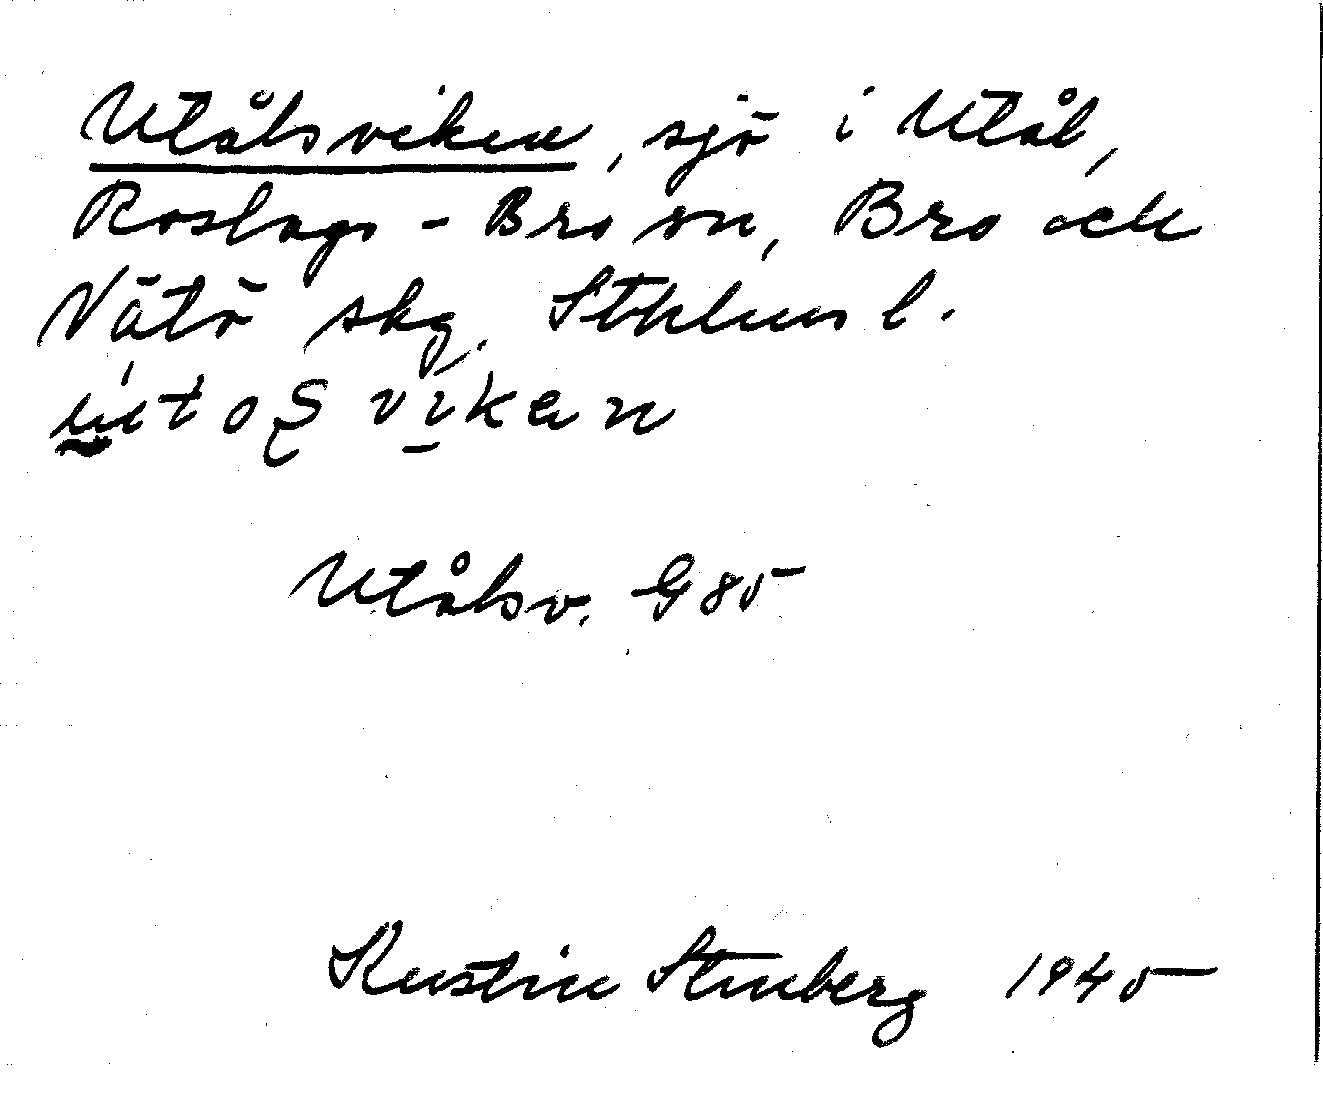 Utålsviken, sjö i Utål,
Roslags-Bro sn, Bro och
Vätö skg. Sthlms l.
Utålsv. G 85
Kustin Stenberg 1945